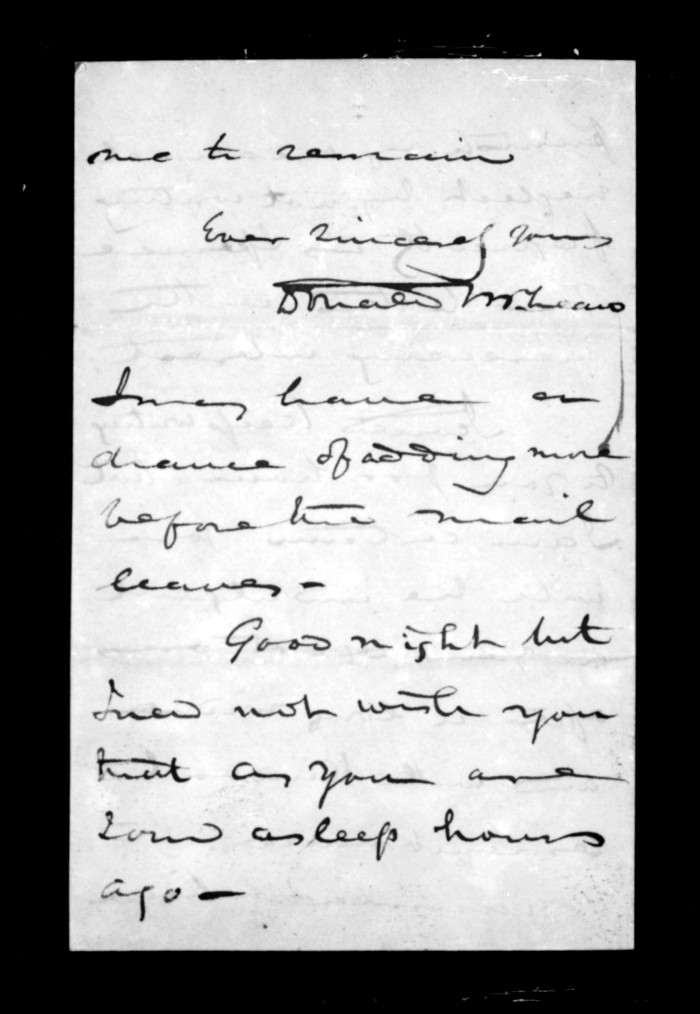 me to remain
Ever sincerely yours
Donald McLean
I may have a
chance of adding more
before the mail
leaves -
Good night but
I need not wish you
that as you are
sound asleep hours
ago -